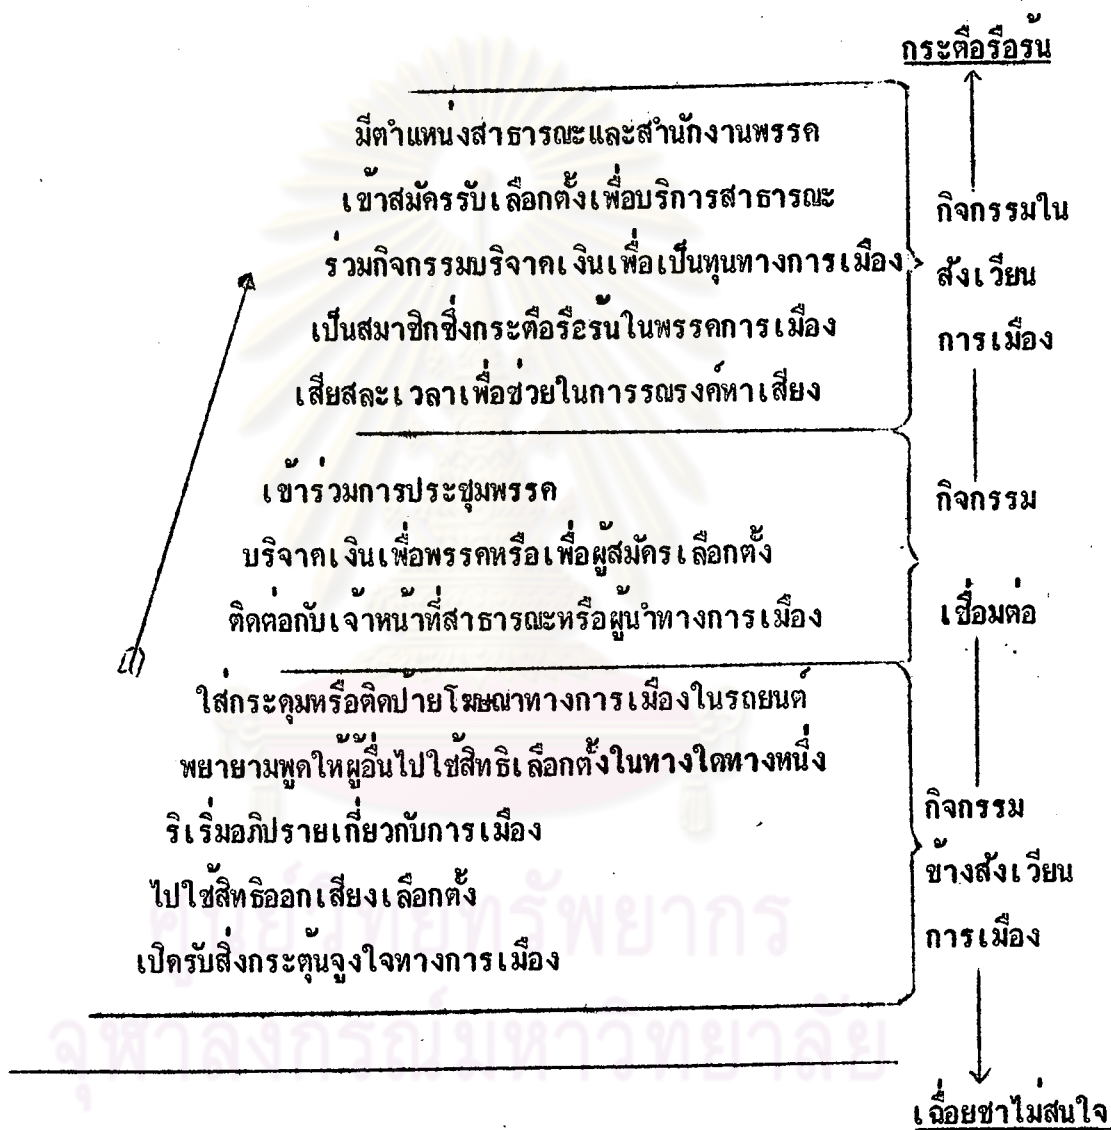 กระตือรือร้น
มีตำแหน่งสาธารณะและสำนักงานพรรค
เข้าสมัครรับเลือกตั้งเพื่อบริการสาธารณะ
ร่วมกิจกรรมบริจาคเงินเพื่อเป็นทุนทางการเมือง
เป็นสมาชิกซึ่งกระตือรือร้นในพรรคการเมือง
เสียสละเวลาเพื่อช่วยในการรณรงค์หาเสียง
กิจกรรมใน
สังเวียน
การเมือง
เข้าร่วมการประชุมพรรค
บริจาคเงินเพื่อพรรคหรือเพื่อผู้สมัครเลือกตั้ง
ติดต่อกับเจ้าหน้าที่สาธารณะหรือผู้นำทางการเมือง
กิจกรรม
เชื่อมต่อ
ใส่กระดุมหรือติดป้ายโฆษณาทางการเมืองในรถยนต์
พยายามพูดให้ผู้อื่นไปใช้สิทธิเลือกตั้งในทางใดทางหนึ่ง
ริเริ่มอภิปรายเกี่ยวกับการเมือง
ไปใช้สิทธิออกเสียงเลือกตั้ง
เปิดรับสิ่งกระตุ้นจูงใจทางการเมือง
กิจกรรม
ข้างสังเวียน
การเมือง
เฉื่อยชาไม่สนใจ
ศูนย์วิทยทรัพยากร
จุฬาลงกรณ์มหาวิทยาลัย